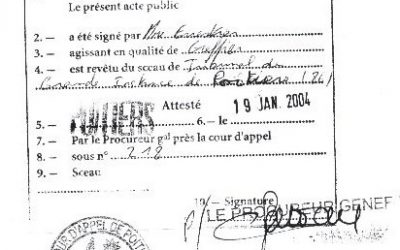 Le présent acte public
2. – a été signé par Mme
3. – agissant en qualité de Greffier
4. – est revêtu du sceau de Tribunal de
Grande Instance de Poitiers (86)
Attesté
5. – POITIERS 6. – le 19 JAN. 2004
7. – Par le Procureur gal près la cour d'appel
8. – sous n° 218
9. – Sceau
10. – Signature
P/ LE PROCUREUR GENE
D'APPEL DE POIT